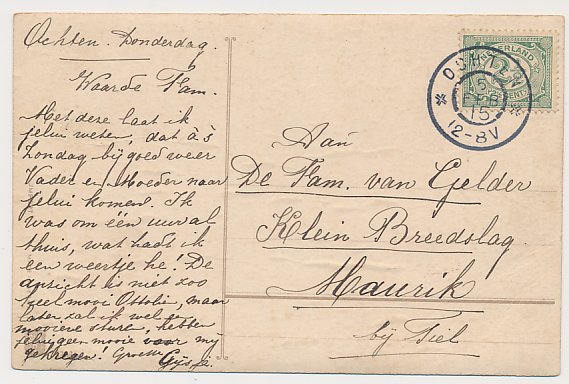 Ochten. Donderdag.
Waarde Fam.
Met deze laat ik
jelui weten, dat a.s
Zondag bij goed weer
Vader en Moeder naar
jelui komen. Ik
was om één uur al
thuis, wat hadt ik
een weertje he! De
anzicht is niet zoo
zeer mooi Ottolie, maar
later zal ik wel
mooiere sturen, hebben
jelui geen mooie voor mij
gekregen! Groeten
Gijs
NEDERLAND
CENT
OCHTEN
5
FEB
15
12-8V
Aan
De Fam. van Gelder
Klein Breedslag
Maurik
bij Tiel